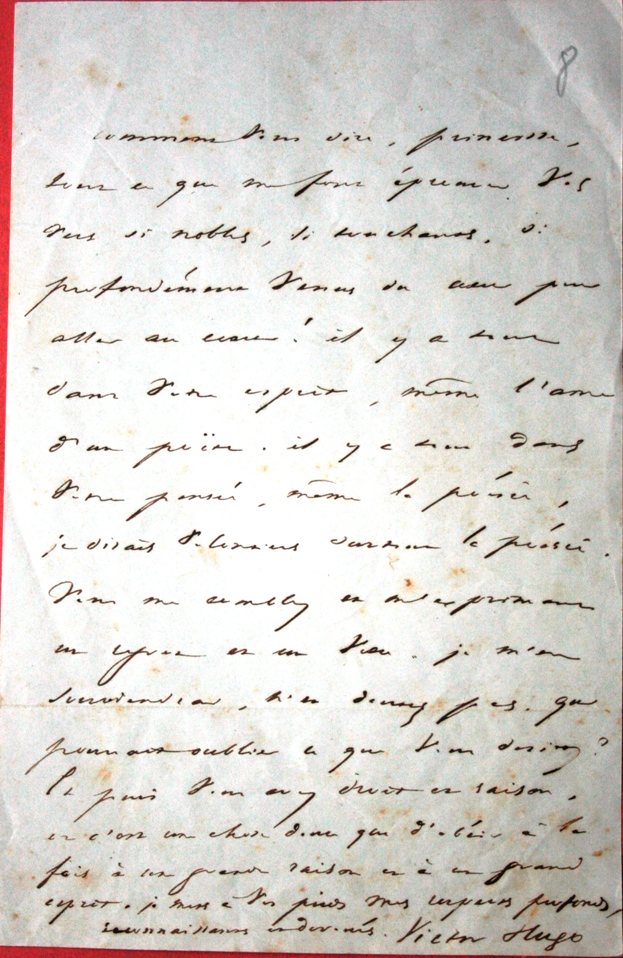 8
Comment vous dire, princesse,
tout ce que me font éprouver vos
vers si nobles, si touchants, si
profondément venus du cœur pour
aller au cœur! il y a tout
dans votre esprit, même l'âme
d'un poëte. il y a tout dans
votre pensée, même la poésie,
je dirais volontiers surtout la poésie.
Vous me semblez en m'exprimant
un regret et un vœu. je m'en
souviendrai, n'en doutez pas. qui
pourrait oublier ce que vous désirez?
Et puis vous avez droit et raison,
et c'est une chose douce que d'obéir à la
fois à une grande raison et à un grand
esprit. je mets à vos pieds mes respects profonds,
reconnaissants et dévoués. Victor Hugo